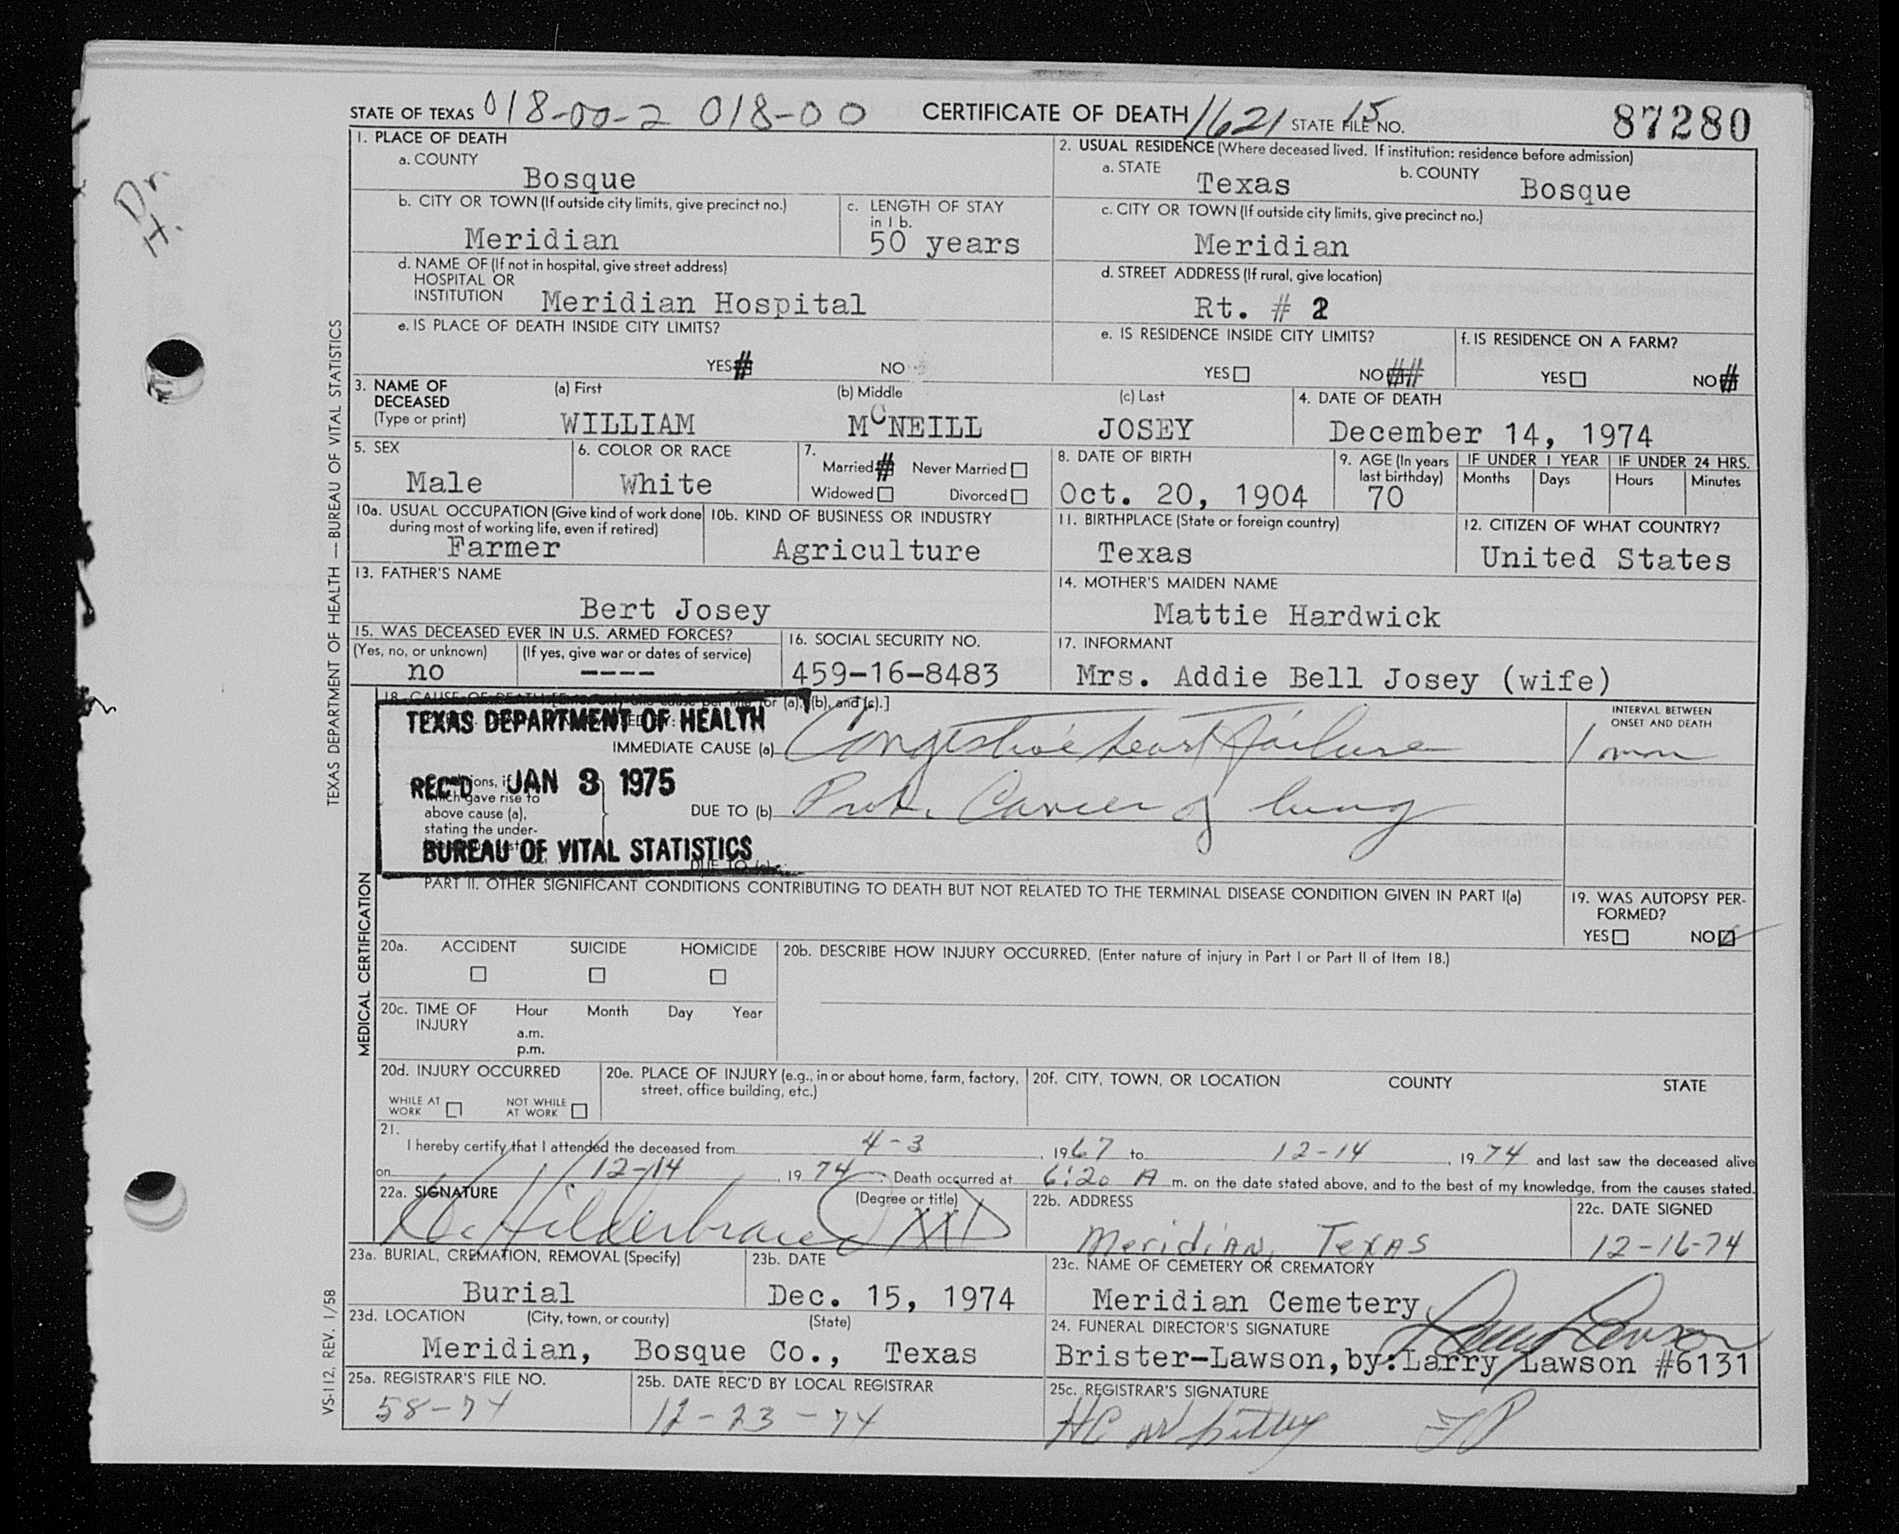 STATE OF TEXAS 018-00-2 018-00 CERTIFICATE OF DEATH 1621 STATE FILE NO. 15 87280
Dr. H.
TEXAS DEPARTMENT OF HEALTH — BUREAU OF VITAL STATISTICS
1. PLACE OF DEATH
a. COUNTY
Bosque
2. USUAL RESIDENCE (Where deceased lived. If institution: residence before admission)
a. STATE
Texas
b. COUNTY
Bosque
b. CITY OR TOWN (If outside city limits, give precinct no.)
Meridian
c. LENGTH OF STAY
in 1 b.
50 years
c. CITY OR TOWN (If outside city limits, give precinct no.)
Meridian
d. NAME OF (If not in hospital, give street address)
HOSPITAL OR
INSTITUTION Meridian Hospital
d. STREET ADDRESS (If rural, give location)
Rt. # 2
e. IS PLACE OF DEATH INSIDE CITY LIMITS?
YES NO
e. IS RESIDENCE INSIDE CITY LIMITS?
YES NO
f. IS RESIDENCE ON A FARM?
YES NO
3. NAME OF
DECEASED
(Type or print)
(a) First
WILLIAM
(b) Middle
McNEILL
(c) Last
JOSEY
4. DATE OF DEATH
December 14, 1974
5. SEX
Male
6. COLOR OR RACE
White
7.
Married Never Married
Widowed Divorced
8. DATE OF BIRTH
Oct. 20, 1904
9. AGE (In years
last birthday)
70
IF UNDER 1 YEAR
Months Days
IF UNDER 24 HRS.
Hours Minutes
10a. USUAL OCCUPATION (Give kind of work done
during most of working life, even if retired)
Farmer
10b. KIND OF BUSINESS OR INDUSTRY
Agriculture
11. BIRTHPLACE (State or foreign country)
Texas
12. CITIZEN OF WHAT COUNTRY?
United States
13. FATHER'S NAME
Bert Josey
14. MOTHER'S MAIDEN NAME
Mattie Hardwick
15. WAS DECEASED EVER IN U.S. ARMED FORCES?
(Yes, no, or unknown)
no
(If yes, give war or dates of service)
----
16. SOCIAL SECURITY NO.
459-16-8483
17. INFORMANT
Mrs. Addie Bell Josey (wife)
MEDICAL CERTIFICATION
18. CAUSE OF DEATH [Enter only one cause per line for (a), (b), and (c).]
TEXAS DEPARTMENT OF HEALTH
REC'D JAN 3 1975
BUREAU OF VITAL STATISTICS
IMMEDIATE CAUSE (a) Congestive heart failure
INTERVAL BETWEEN
ONSET AND DEATH
1 mon
which gave rise to
above cause (a),
stating the under-
DUE TO (b) Prob. Cancer of lung
DUE TO (c)
PART II. OTHER SIGNIFICANT CONDITIONS CONTRIBUTING TO DEATH BUT NOT RELATED TO THE TERMINAL DISEASE CONDITION GIVEN IN PART I(a)
19. WAS AUTOPSY PER-
FORMED?
YES NO
20a. ACCIDENT SUICIDE HOMICIDE
20b. DESCRIBE HOW INJURY OCCURRED. (Enter nature of injury in Part I or Part II of Item 18.)
20c. TIME OF
INJURY
Hour Month Day Year
a.m.
p.m.
20d. INJURY OCCURRED
WHILE AT
WORK
NOT WHILE
AT WORK
20e. PLACE OF INJURY (e.g., in or about home, farm, factory,
street, office building, etc.)
20f. CITY, TOWN, OR LOCATION COUNTY STATE
21.
I hereby certify that I attended the deceased from 4-3, 1967 to 12-14, 1974 and last saw the deceased alive
on 12-14, 1974. Death occurred at 6:20 A m. on the date stated above, and to the best of my knowledge, from the causes stated.
22a. SIGNATURE
(Degree or title)
Hilderbrand MD
22b. ADDRESS
Meridian, Texas
22c. DATE SIGNED
12-16-74
VS-112, REV. 1/58
23a. BURIAL, CREMATION, REMOVAL (Specify)
Burial
23b. DATE
Dec. 15, 1974
23c. NAME OF CEMETERY OR CREMATORY
Meridian Cemetery
23d. LOCATION (City, town, or county) (State)
Meridian, Bosque Co., Texas
24. FUNERAL DIRECTOR'S SIGNATURE
Larry Lawson
Brister-Lawson, by: Larry Lawson #6131
25a. REGISTRAR'S FILE NO.
58-74
25b. DATE REC'D BY LOCAL REGISTRAR
12-23-74
25c. REGISTRAR'S SIGNATURE
HC